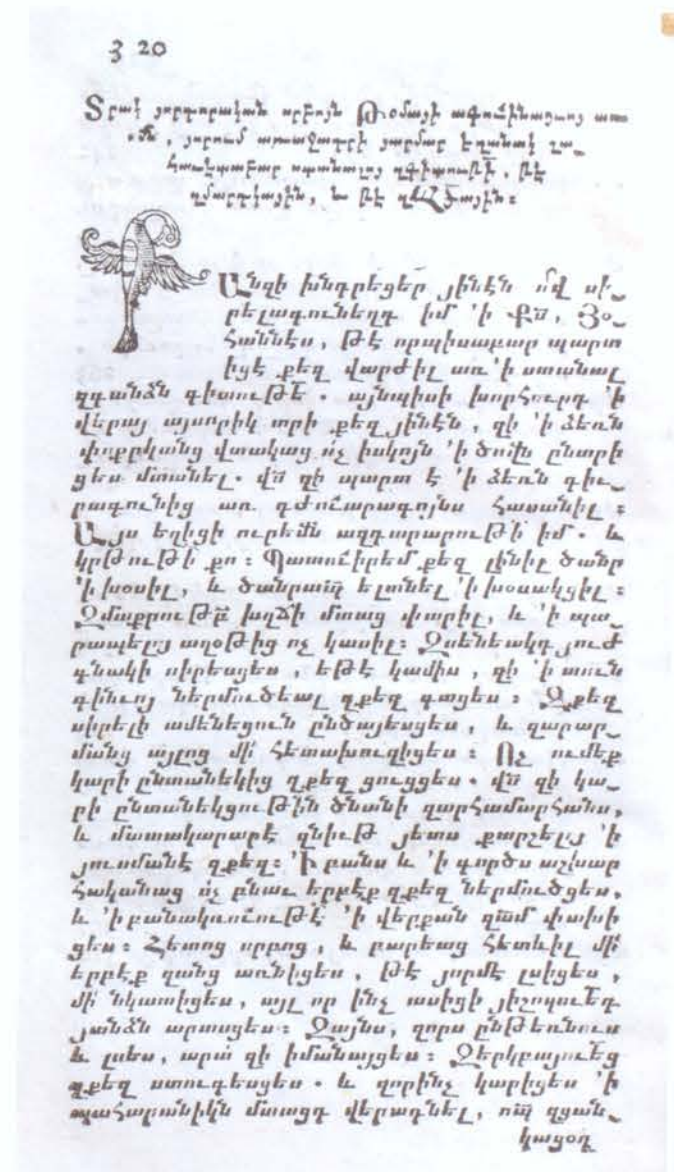 3 20
Տրակ յորդորական սրբոյն Թօմայի ագուինացւոյ առ
յորում առաջադրի յարմար եղանակ
ստանալոյ զգիտուի՛, թէ
զմարդկային, և թէ
Անզի խնդրեցեր յինէն սի֊
րելագունեղդ իմ ՚ի Քս̃, Յօ֊
հաննէս, թէ որպիսաբար պարտ
իցէ քեզ վարժիլ առ ՚ի ստանալ
զգանձն գիտութե՛. այնպիսի խորհուրդ ՚ի
վերայ այսորիկ տրի քեզ յինէն, զի ՚ի ձեռն
փոքրկանց վտակաց ոչ իսկոյն ՚ի ծովն ընտրի
ցես մտանել. վս̃ զի պարտ է ՚ի ձեռն գիւ֊
րագունից առ դժուարագոյնս հասանիլ։
Այս եղիցի ուրեմն ազդարարութի՛ իմ. և
կրթութի՛ քո։ Պատուիրեմ քեզ լինիլ ծանր
՚ի խօսիլ, և ծանրապ̃ ելանել ՚ի խօսակցիլ։
Զմաքրութի̃ խղճի մտաց փարիլ, և ՚ի պա֊
րապելոյ աղօթից ոչ կասիլ։ Զսենեակդ յուժ
գնակի սիրեսցես, եթէ կամիս, զի ՚ի տուն
գինւոյ ներմուծեալ զքեզ գտցես։ Զքեզ
սիրելի ամենեցուն ընծայեսցես, և զարար֊
մանց այլոց մի՛ հետախուզիցես։ Ոչ ումեք
կարի ընտանեկից զքեզ ցուցցես. վս̃ զի կա֊
րի ընտանեկցութիւն ծնանի զարհամարհանս,
և մատակարարէ զնիւթ յետս քարշելոյ ՚ի
յուսմանէ զքեզ։ ՚Ի բանս և ՚ի գործս աշխար
հականաց ոչ բնաւ երբէք զքեզ ներմուծցես,
և ՚ի բանակռուութէ՛ ՚ի վերքան զամ̃ փախի
ցես։ Զհետոց սրբոց, և բարեաց հետևիլ մի՛
երբէք զանց առնիցես, թէ յորմէ լսիցես,
մի՛ նկատիցես, այլ որ ինչ ասիցի յիշողուեդ
յանձն արասցես։ Զայնս, զորս ընթեռնուս
և լսես, արա՛ զի իմանայցես։ Զերկբայուեց
զքեզ ստուգեսցես. և զորինչ կարիցես ՚ի
պահարանիկն մտացդ վերադնել, որպ̃ զցան֊
կացօղ